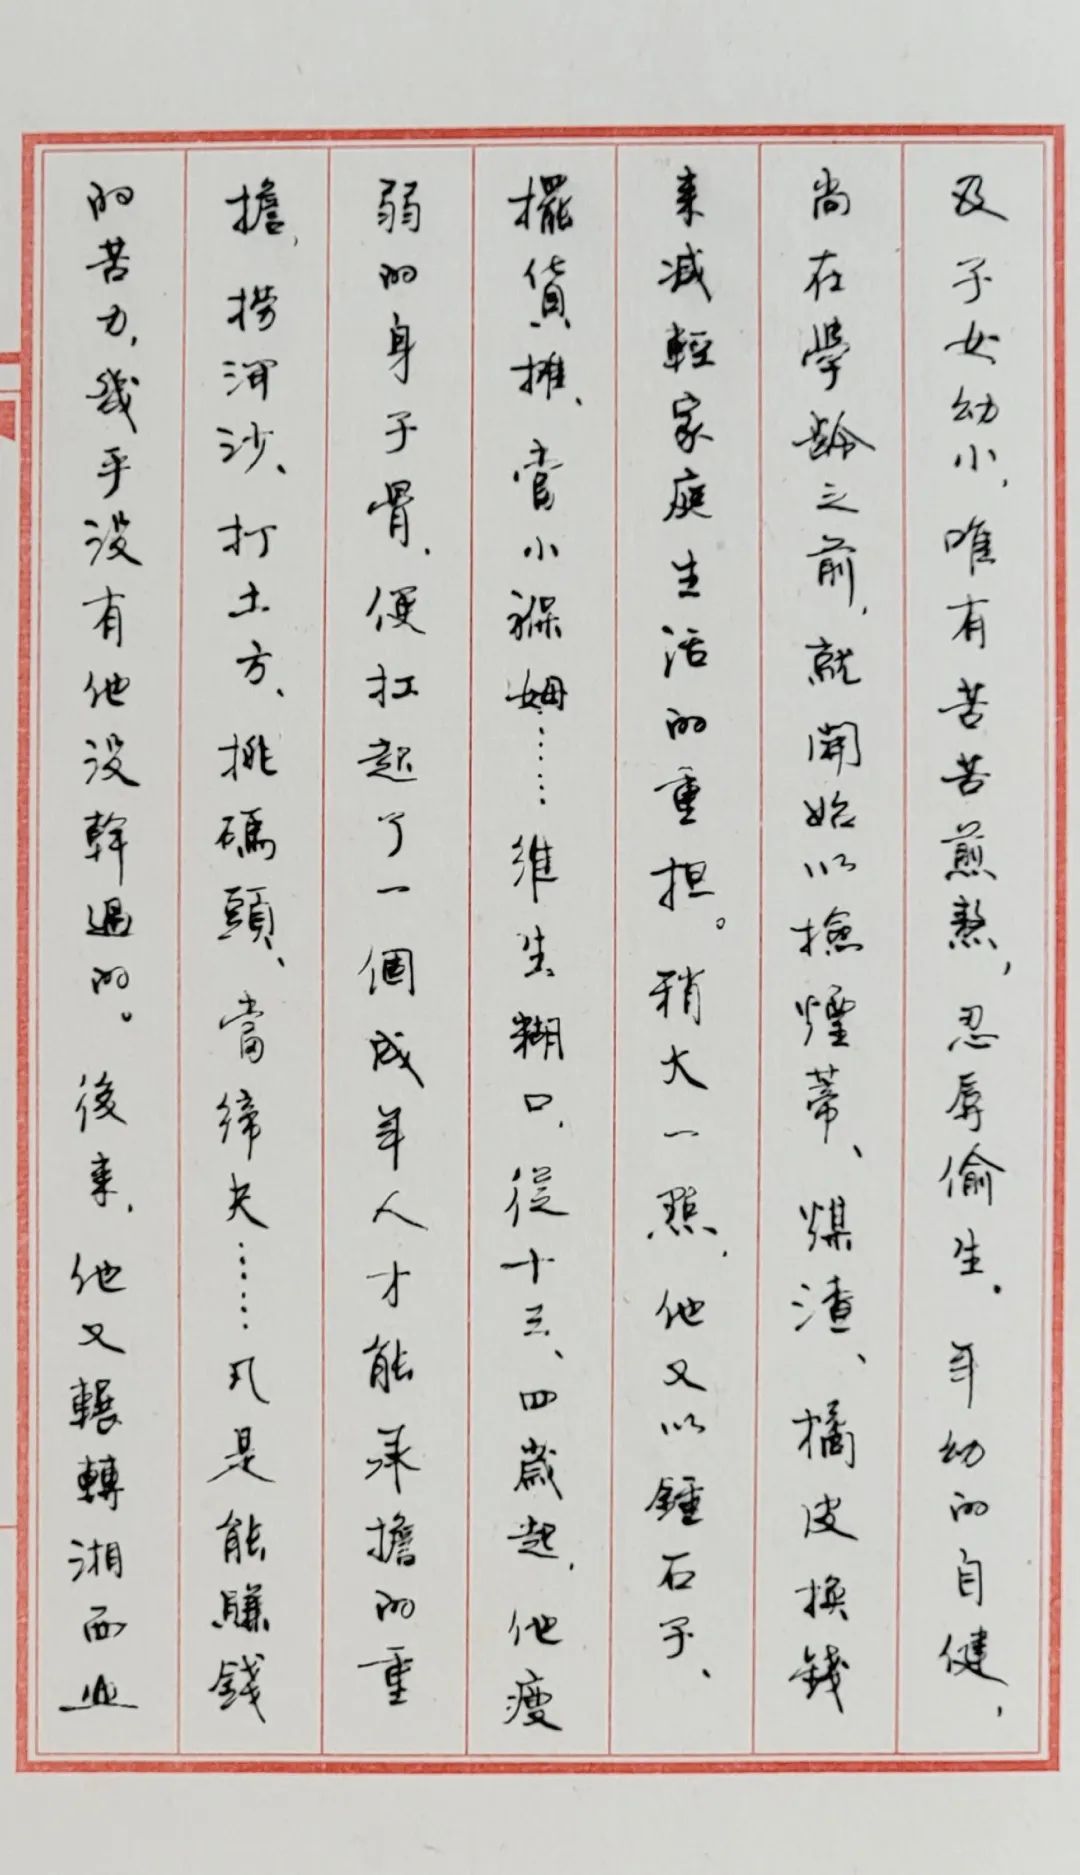 及子女幼小，唯有苦苦煎熬，忍辱偷生。年幼的自健，
尚在學齡之前，就開始以撿煙蒂、煤渣、橘皮換錢
来減輕家庭生活的重担。稍大一點，他又以錘石子、
擺貨攤、當小褓姆……維生糊口，從十三、四歲起，他瘦
弱的身子骨，便扛起了一個成年人才能承擔的重
擔，撈河沙、打土方、挑碼頭、當締夫……凡是能賺錢
的苦力，幾乎沒有他沒幹過的。後来，他又輾轉湘西出